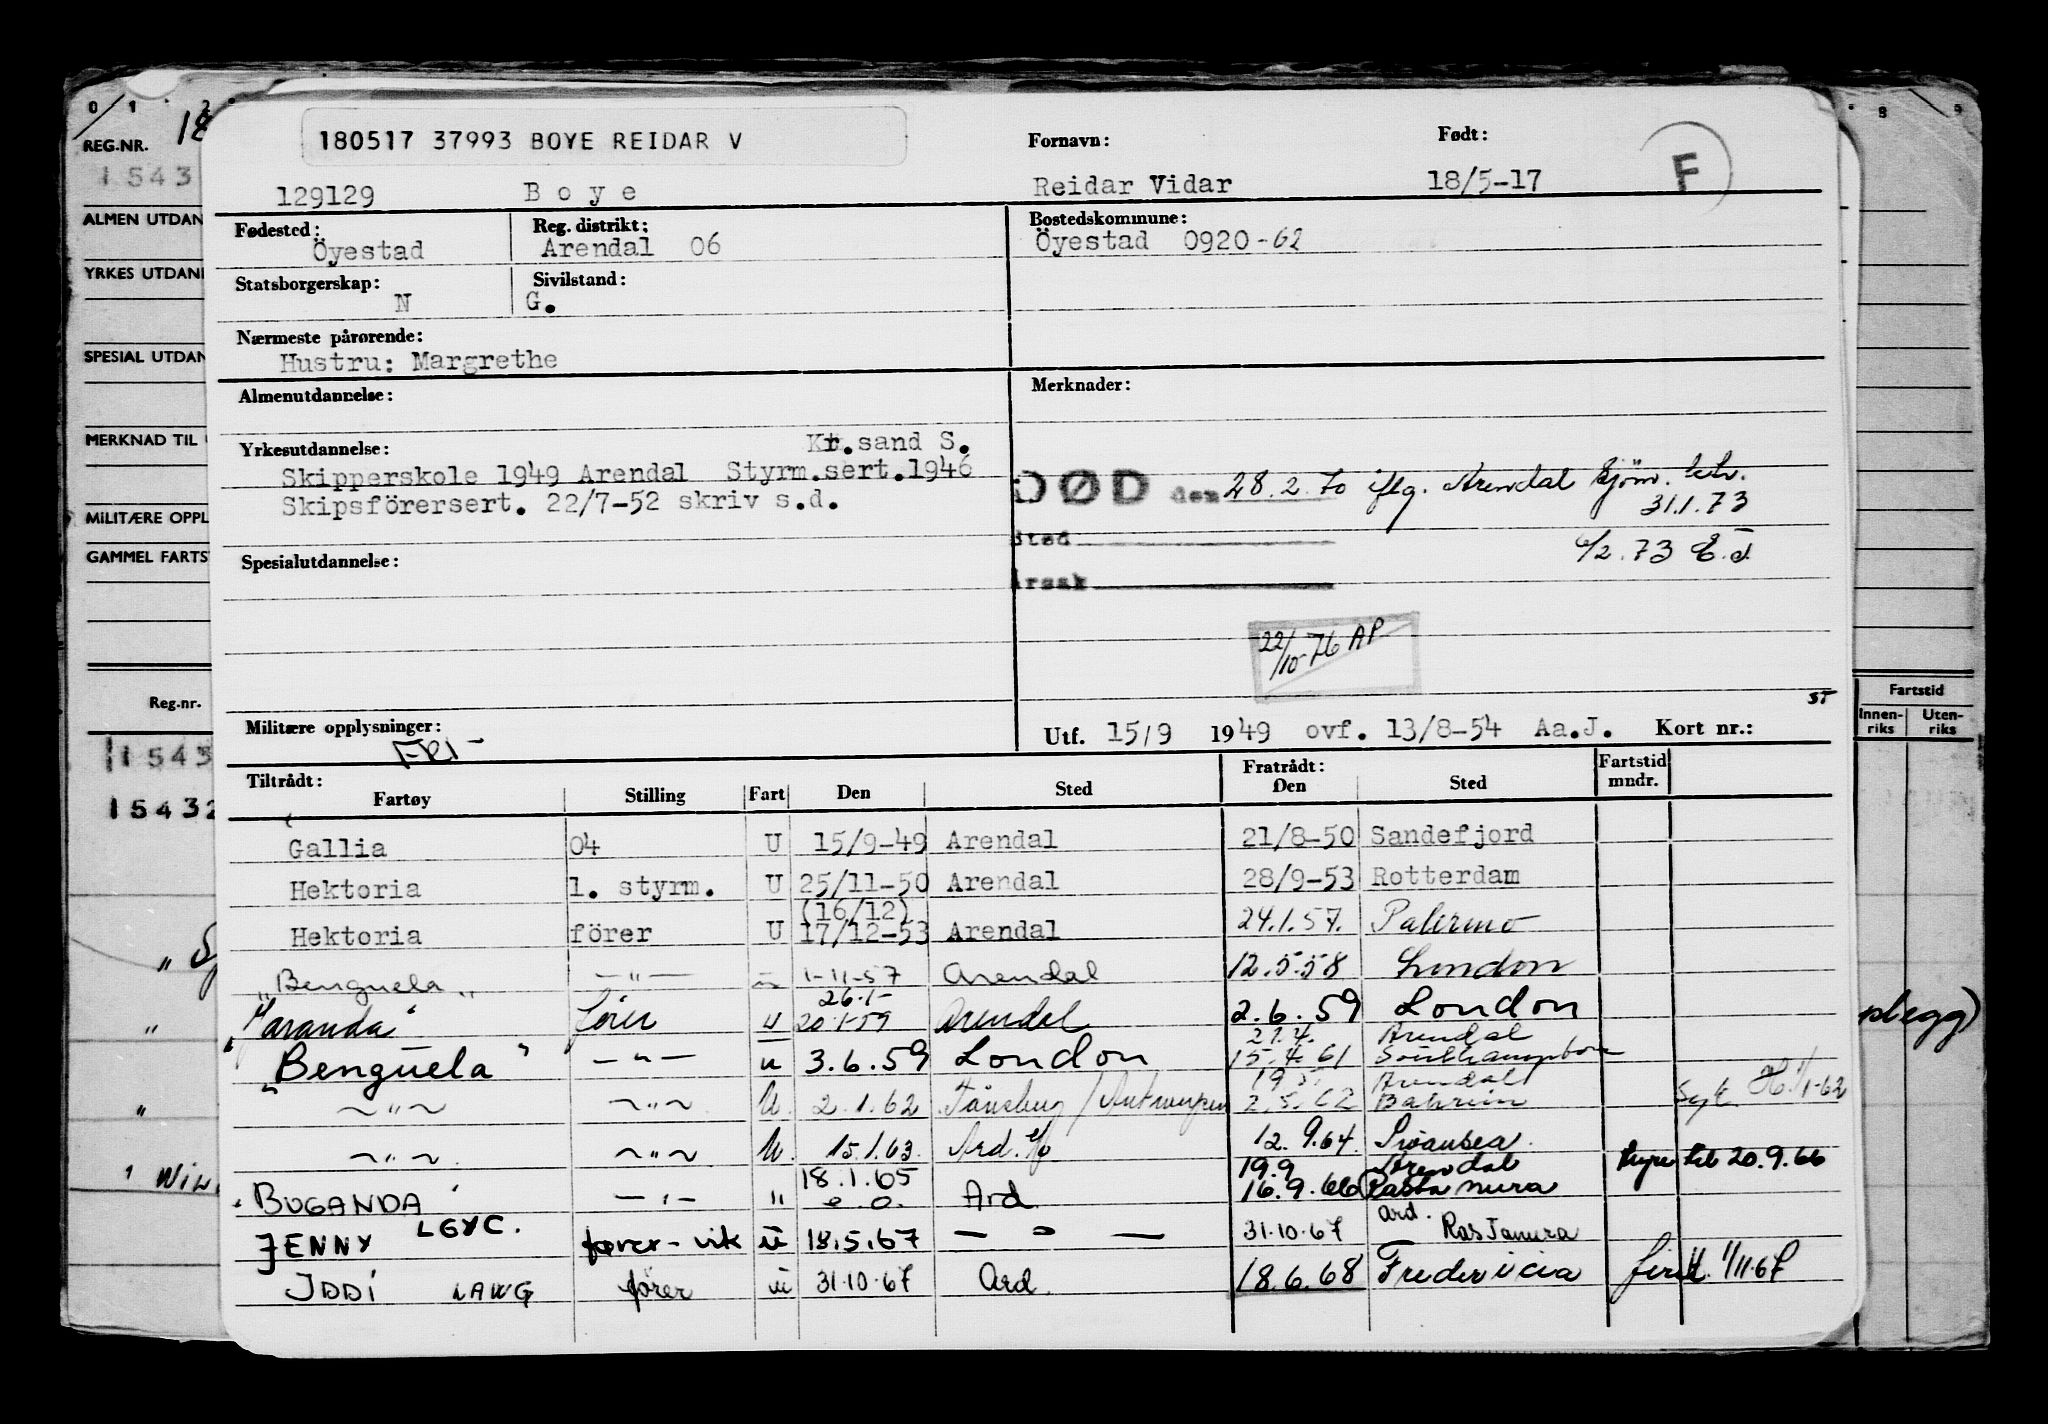 0 1 2 8 9
REG.NR. 18
1543
ALMEN UTDAN
YRKES UTDAN
SPESIAL UTDAN
MERKNAD TIL
MILITÆRE OPPL
GAMMEL FARTS
Reg.nr.
1543
15432
180517 37993 BOYE REIDAR V
Fornavn: Født: F
129129 Boye Reidar Vidar 18/5-17
Fødested: Reg. distrikt: Bostedskommune:
Öyestad Arendal 06 Öyestad 0920-62
Statsborgerskap: Sivilstand:
N G.
Nærmeste pårørende:
Hustru: Margrethe
Almenutdannelse: Merknader:
Yrkesutdannelse: Kr.sand S.
Skipperskole 1949 Arendal Styrm.sert.1946
Skipsförersert. 22/7-52 skriv s.d.
DØD den 28.2.70 iflg. Arendal
31.1.73
Sted
6/2.73
Årsak
Spesialutdannelse:
22/10-76 AP
ST
Militære opplysninger: FRI
Utf. 15/9 1949 ovf. 13/8-54 Aa.J. Kort nr.:
Fartstid
Innen-riks Uten-riks
Tiltrådt: Fratrådt: Fartstid mndr.
Fartøy Stilling Fart Den Sted Den Sted
Gallia 04 U 15/9-49 Arendal 21/8-50 Sandefjord
Hektoria 1. styrm. U 25/11-50 Arendal 28/9-53 Rotterdam
(16/12)
Hektoria förer U 17/12-53 Arendal 24.1.57. Palermo
"Benguela" —"— 1-11-57 Arendal 12.5.58 London
26.1-
"Maranda" fører U 20.1-59 Arendal 2.6.59 London
21.4. Arendal
"Benguela" —"— u 3.6.59 London 15.4.61 Southampton
19.5. Arendal
~"~ ~"~ U. 2.1.62 Tönsberg / Antwerpen 2.5.62 Bahrein Syk 1/1-62
~"~ ~"~ U. 15.1.63 Ard. 12.9.64. Swansea.
18.1.65 19.9 Arendal
"BUGANDA" —"— " Ard 16.9.66 Ras Tanura hyre til 20.9.66
Ard.
JENNY LGYC. fører-vik ü 18.5.67 — " — 31.10.67 Ras Tanura
IDDI LAWG fører ü 31.10.67 Ard. 18.6.68 Fredericia 1/11.67